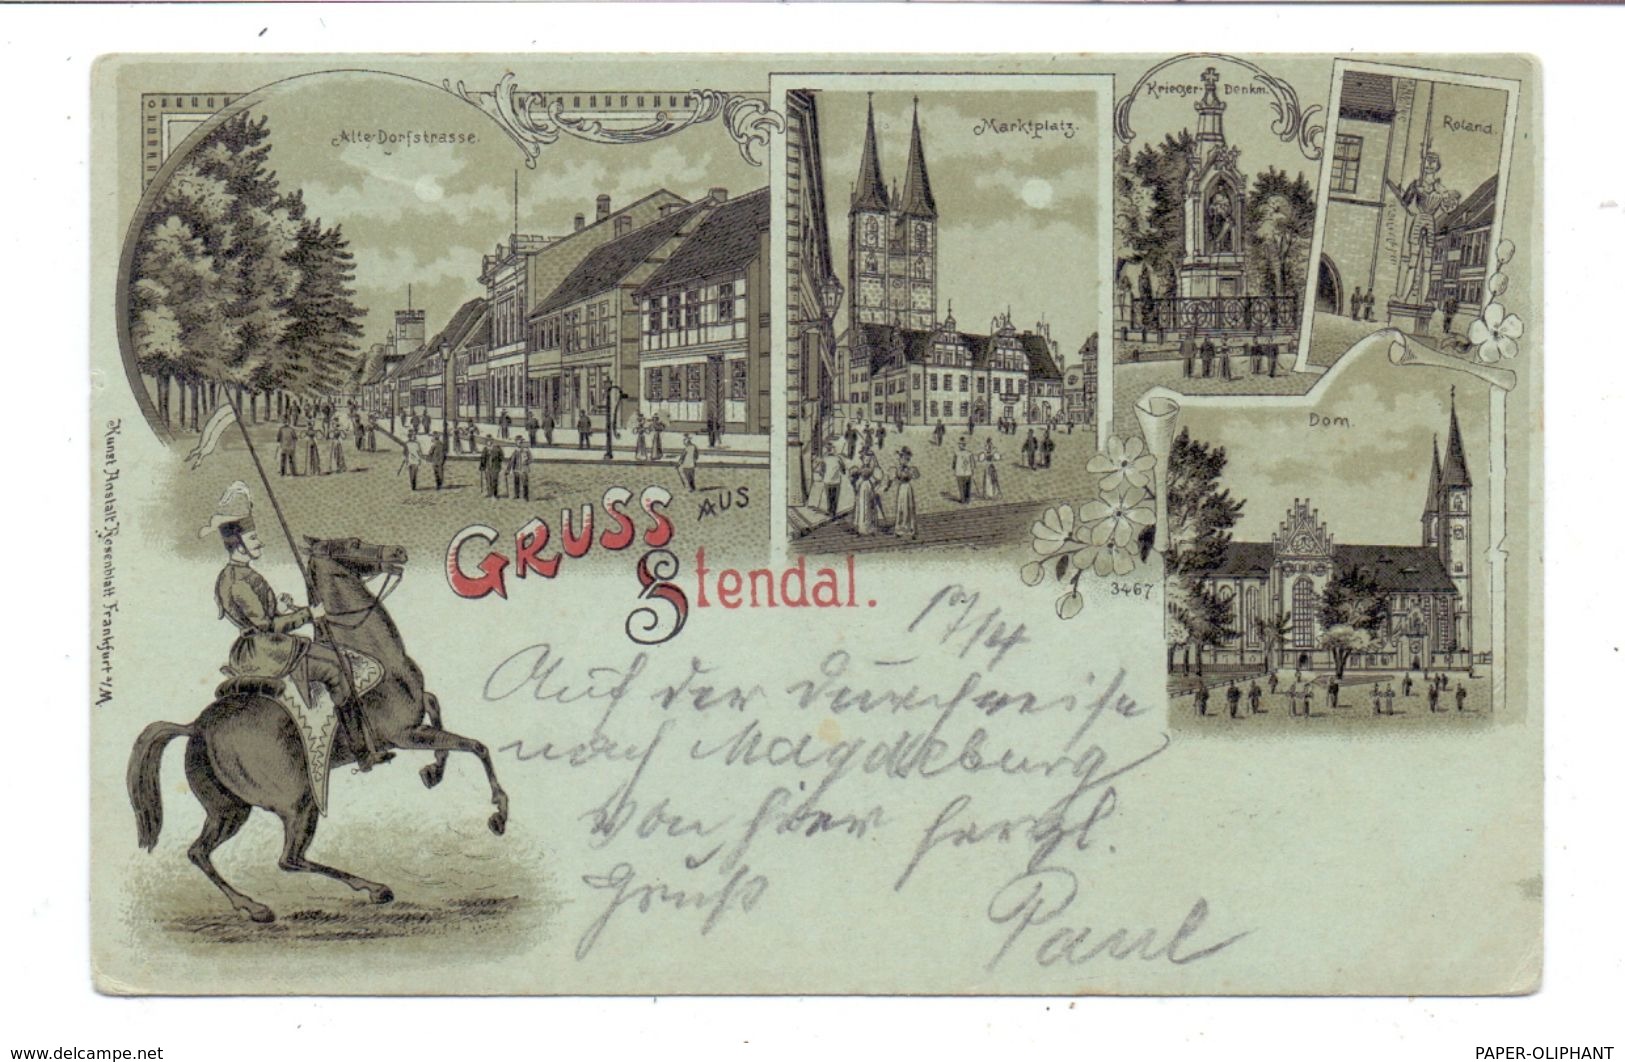 Alte-Dorfstrasse.
Marktplatz.
Krieger-Denkm.
Roland.
Dom.
GRUSS AUS
Stendal.
3467
Kunst Anstalt Rosenblatt Frankfurt a/M
17/4
Auf der Durchreise
nach Magdeburg
von hier herzl.
Gruß
Paul
www.delcampe.net
PAPER-OLIPHANT